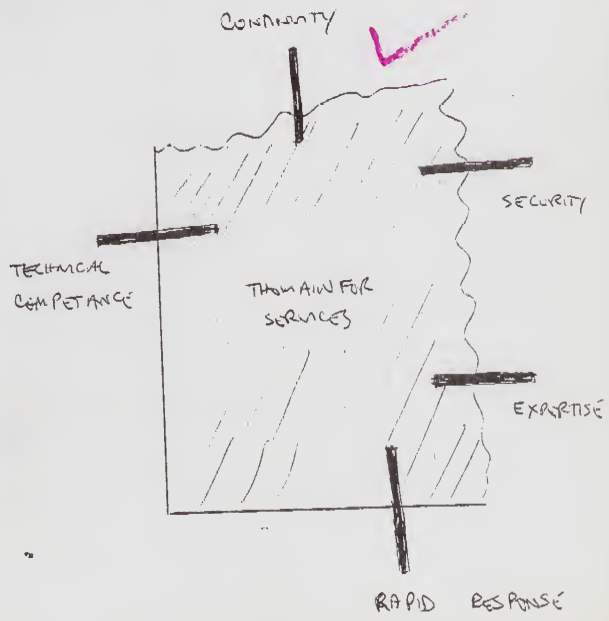 CONTINUITY
SECURITY
TECHNICAL
COMPETANCE
THOMAINFOR
SERVICES
EXPERTISE
RAPID RESPONSE